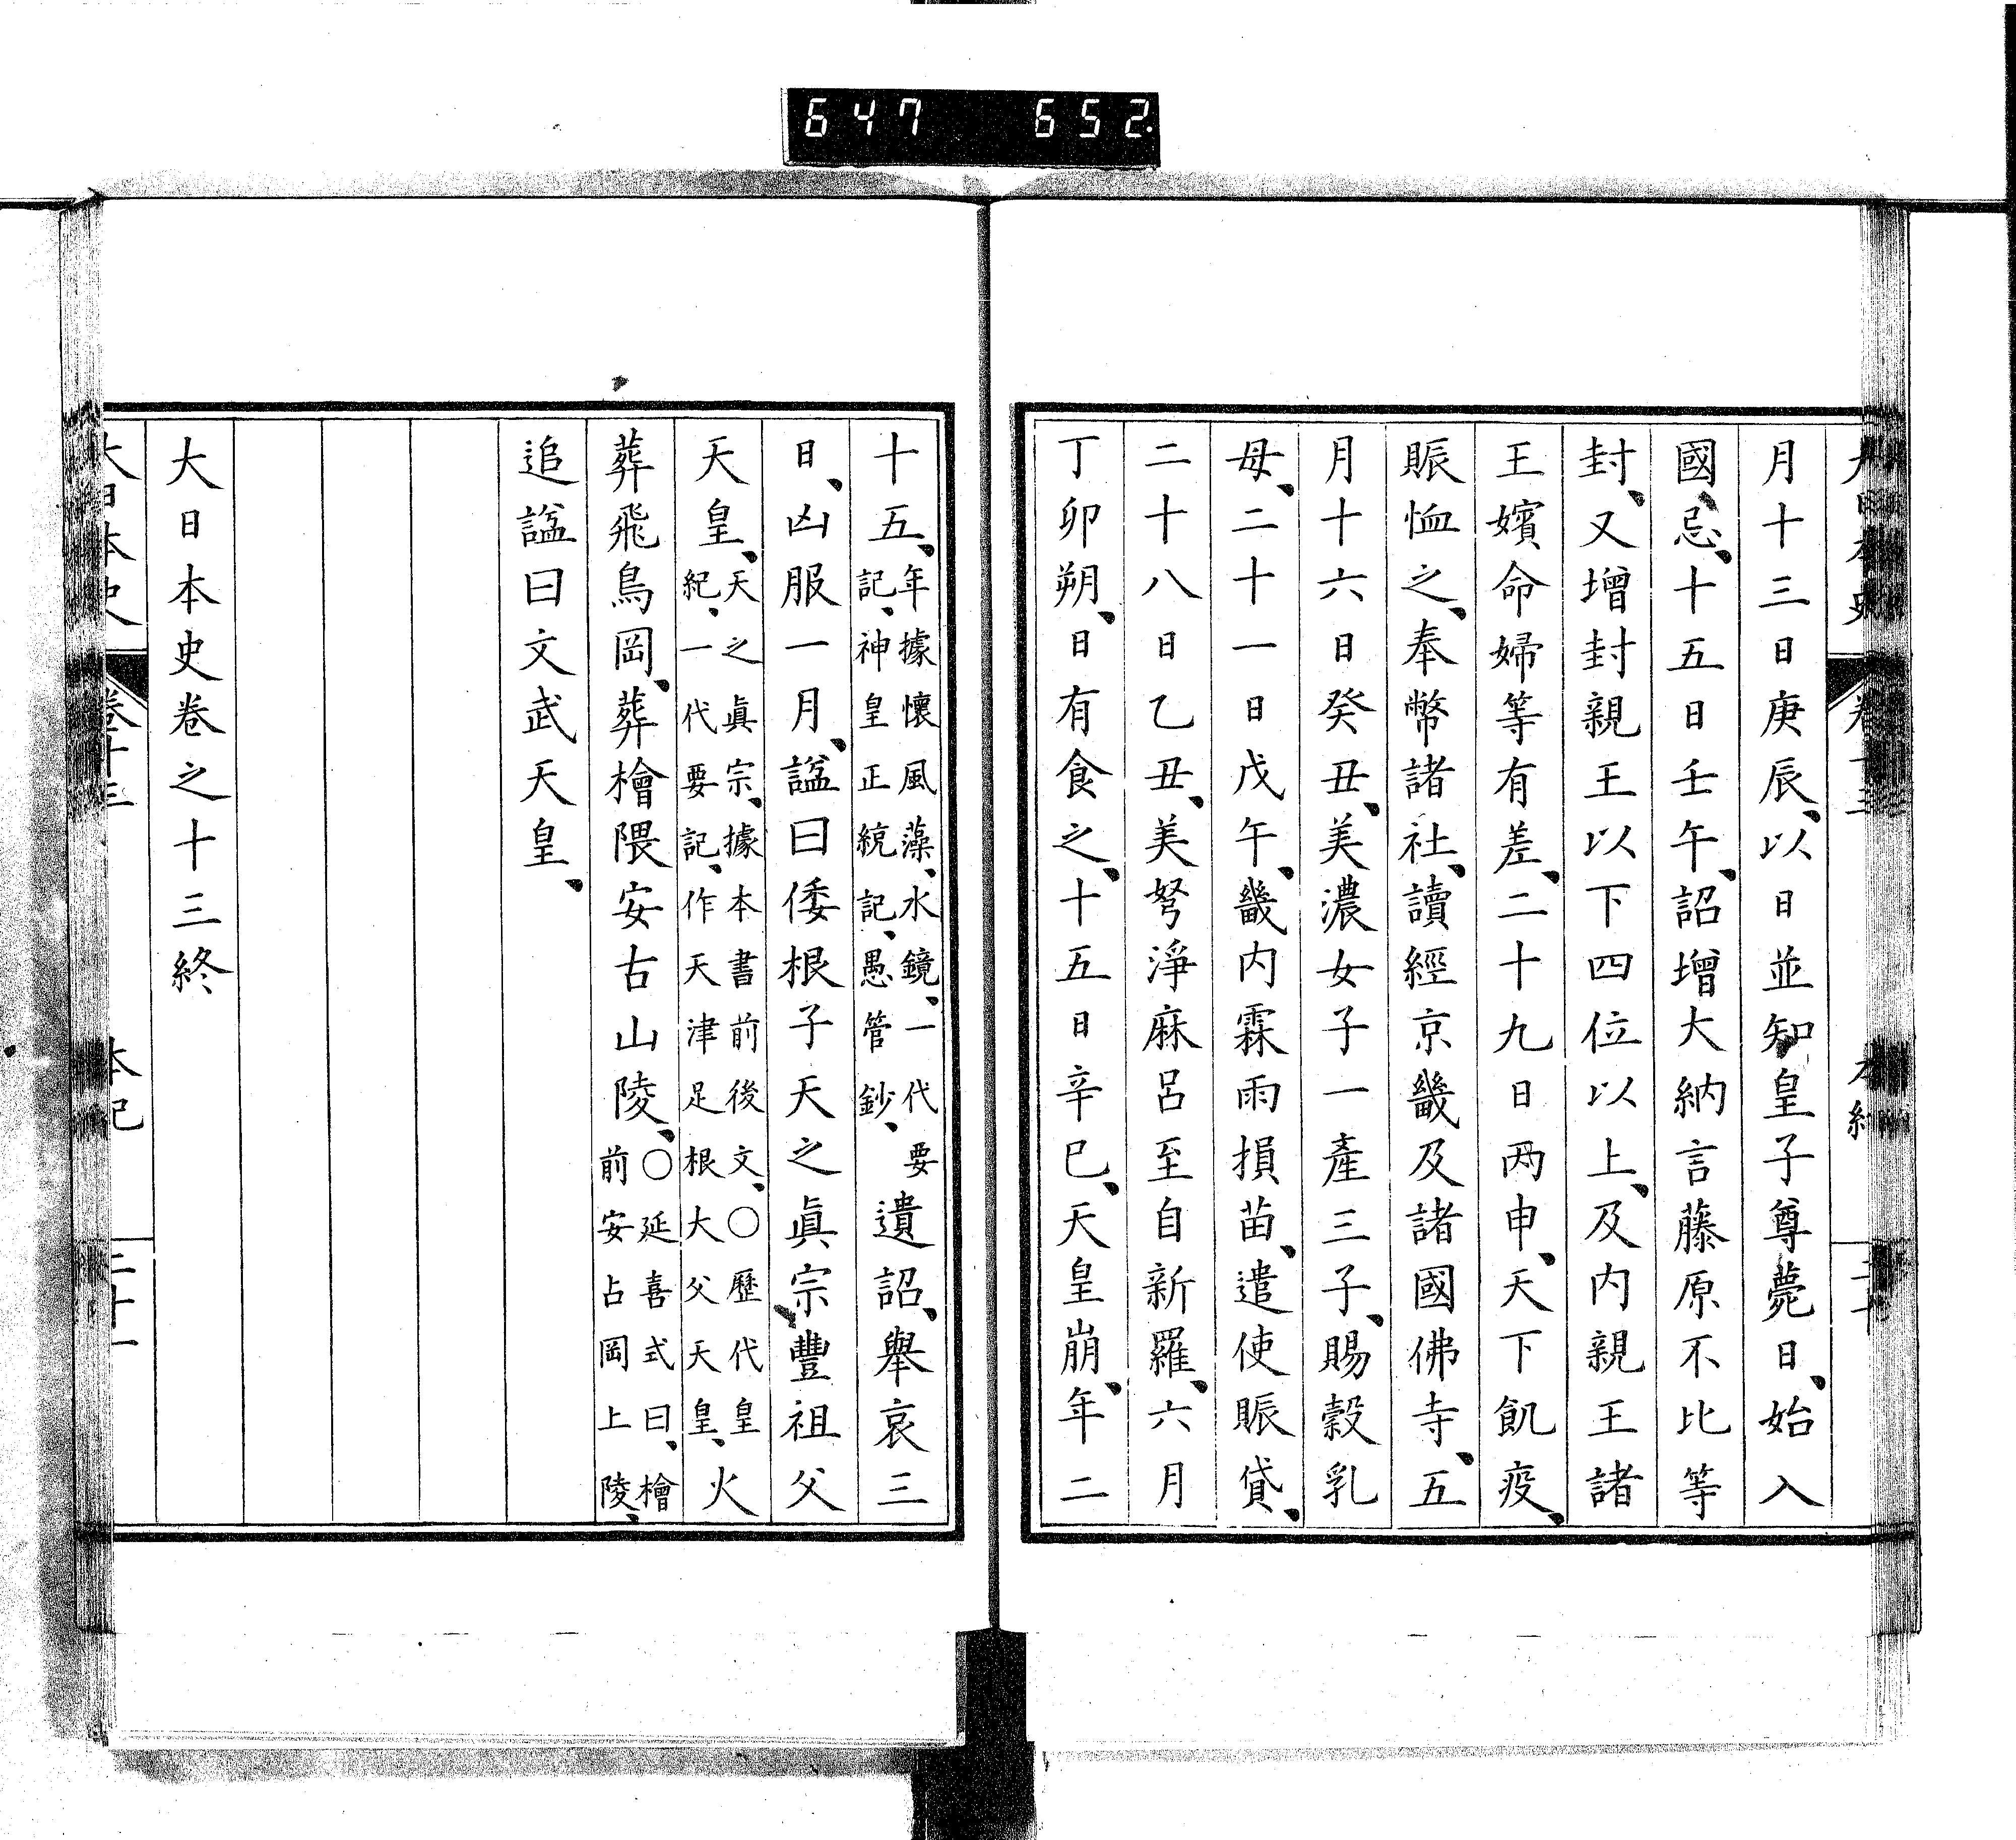 647 652.
月十三日庚辰、以日並知皇子尊薨日、始入
國忌、十五日壬午、詔增大納言藤原不比等
封、又增封親王以下四位以上、及内親王諸
王嬪命婦等有差、二十九日丙申、天下飢疫、
賑恤之、奉幣諸社、讀經京畿及諸國佛寺、五
月十六日癸丑、美濃女子一產三子、賜穀乳
母、二十一日戊午、畿内霖雨損苗、遣使賑貸、
二十八日乙丑、美努淨麻呂至自新羅、六月
丁卯朔、日有食之、十五日辛巳、天皇崩、年二
十五、年據懷風藻、水鏡、一代要記、神皇正統記、愚管鈔、遺詔、舉哀三
日、凶服一月、諡曰倭根子天之眞宗豐祖父
天皇、天之眞宗、據本書前後文、○歷代皇紀、一代要記、作天津足根大父天皇、火
葬飛鳥岡、葬檜隈安古山陵、○延喜式曰、檜前安占岡上陵、
追諡曰文武天皇、
大日本史卷之十三終
大日本史 卷十三 本紀 二十一